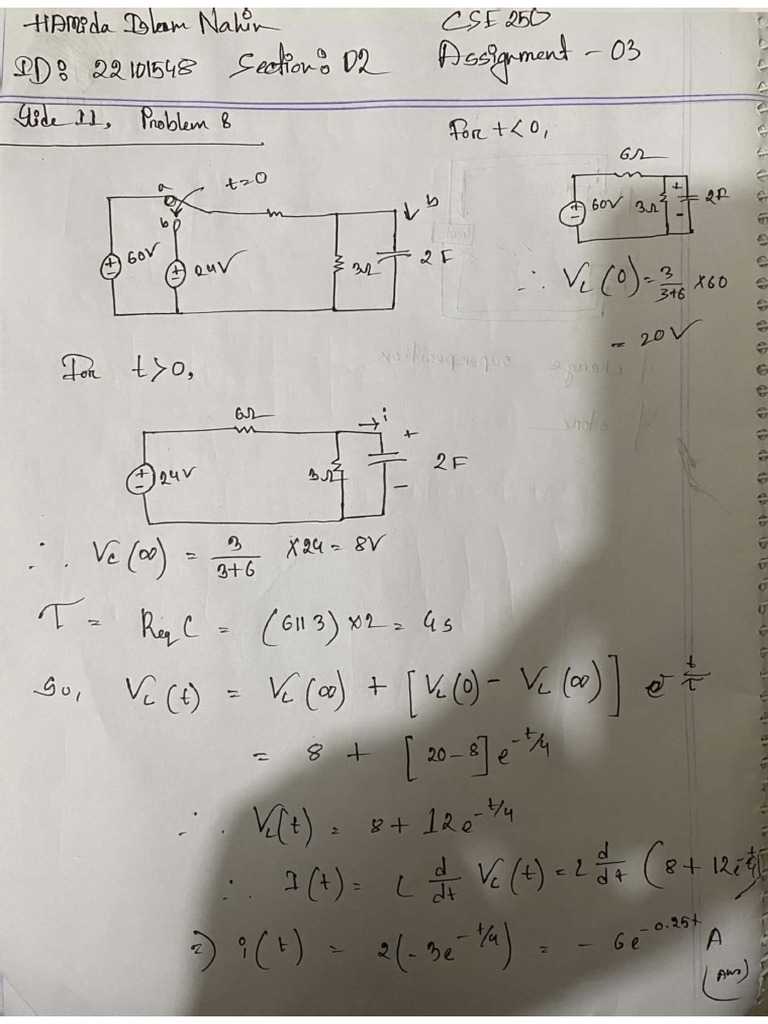 HAMida Islam Nahin
CSE 250
ID: 22101548 Section: D2
Assignment - 03
Slide 11, Problem 8
For t<0,
6Ω
60V 3Ω + - 2F
a t=0
b
60V 24V 3Ω 2F
∴ Vc(0) = 3/(3+6) × 60
= 20V
For t>0,
6Ω → i
24V 3Ω + - 2F
∴ Vc(∞) = 3/(3+6) × 24 = 8V
τ = Req C = (6||3) × 2 = 4s
So, Vc(t) = Vc(∞) + [Vc(0) - Vc(∞)] e^-t/τ
= 8 + [20-8] e^-t/4
∴ Vc(t) = 8 + 12e^-t/4
∴ I(t) = C d/dt Vc(t) = 2 d/dt (8 + 12e^-t/4)
⇒ i(t) = 2(-3e^-t/4) = -6e^-0.25t A
(Ans)